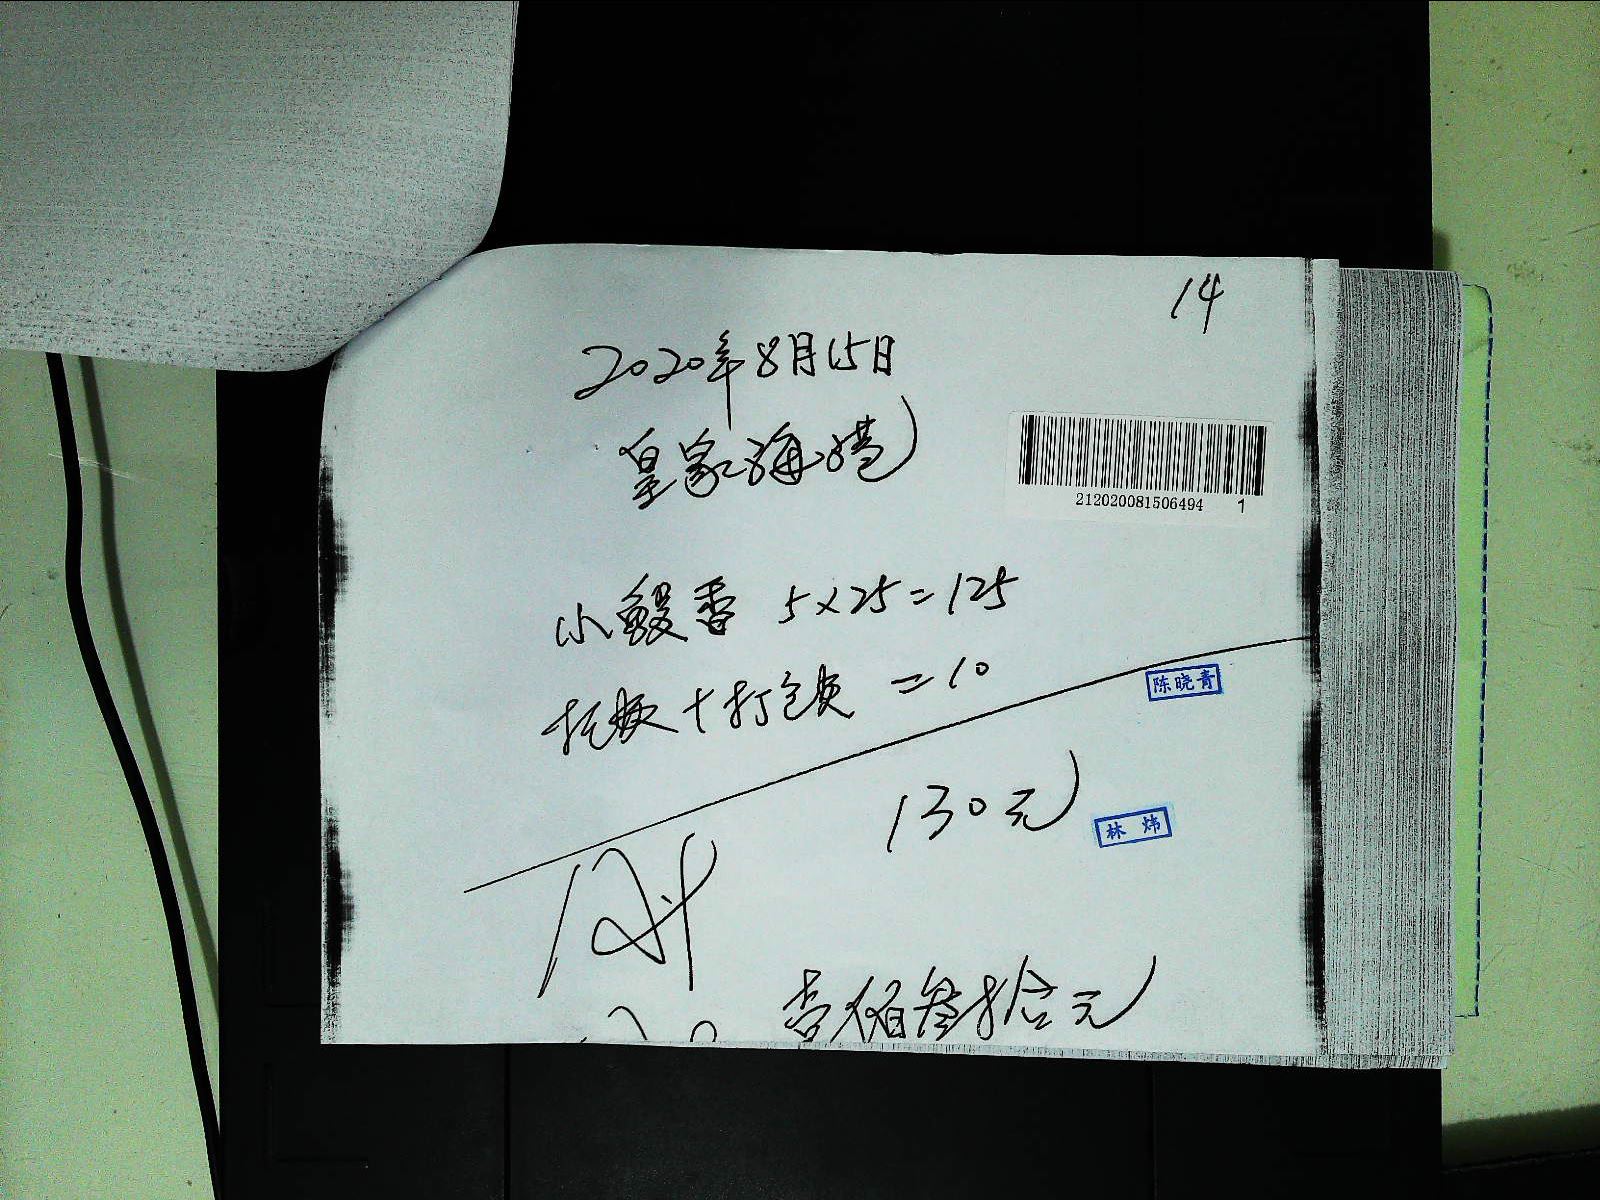 14
2020年8月15日
皇家海港
212020081506494 1
小鳗香 5×25=125
托板+打包费 =10
陈晓青
130元
林炜
壹佰叁拾元